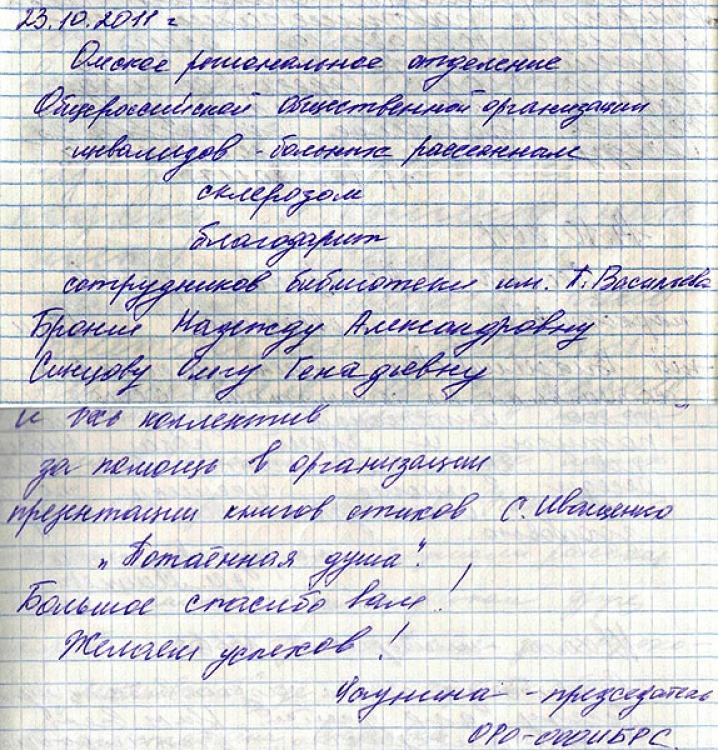 23.10.2011 г
Омское региональное отделение
Общероссийской общественной организации
инвалидов - больных рассеянным
склерозом
благодарит
сотрудников библиотеки им. П. Васильева
Надежду Александровну
Синцову Ольгу Генадьевну
и весь коллектив
за помощь в организации
презентации стихов С. Иващенко
„Потаённая душа".
Большое спасибо вам!
Желаем успехов!
- председатель
ОРО-ОООИБРС